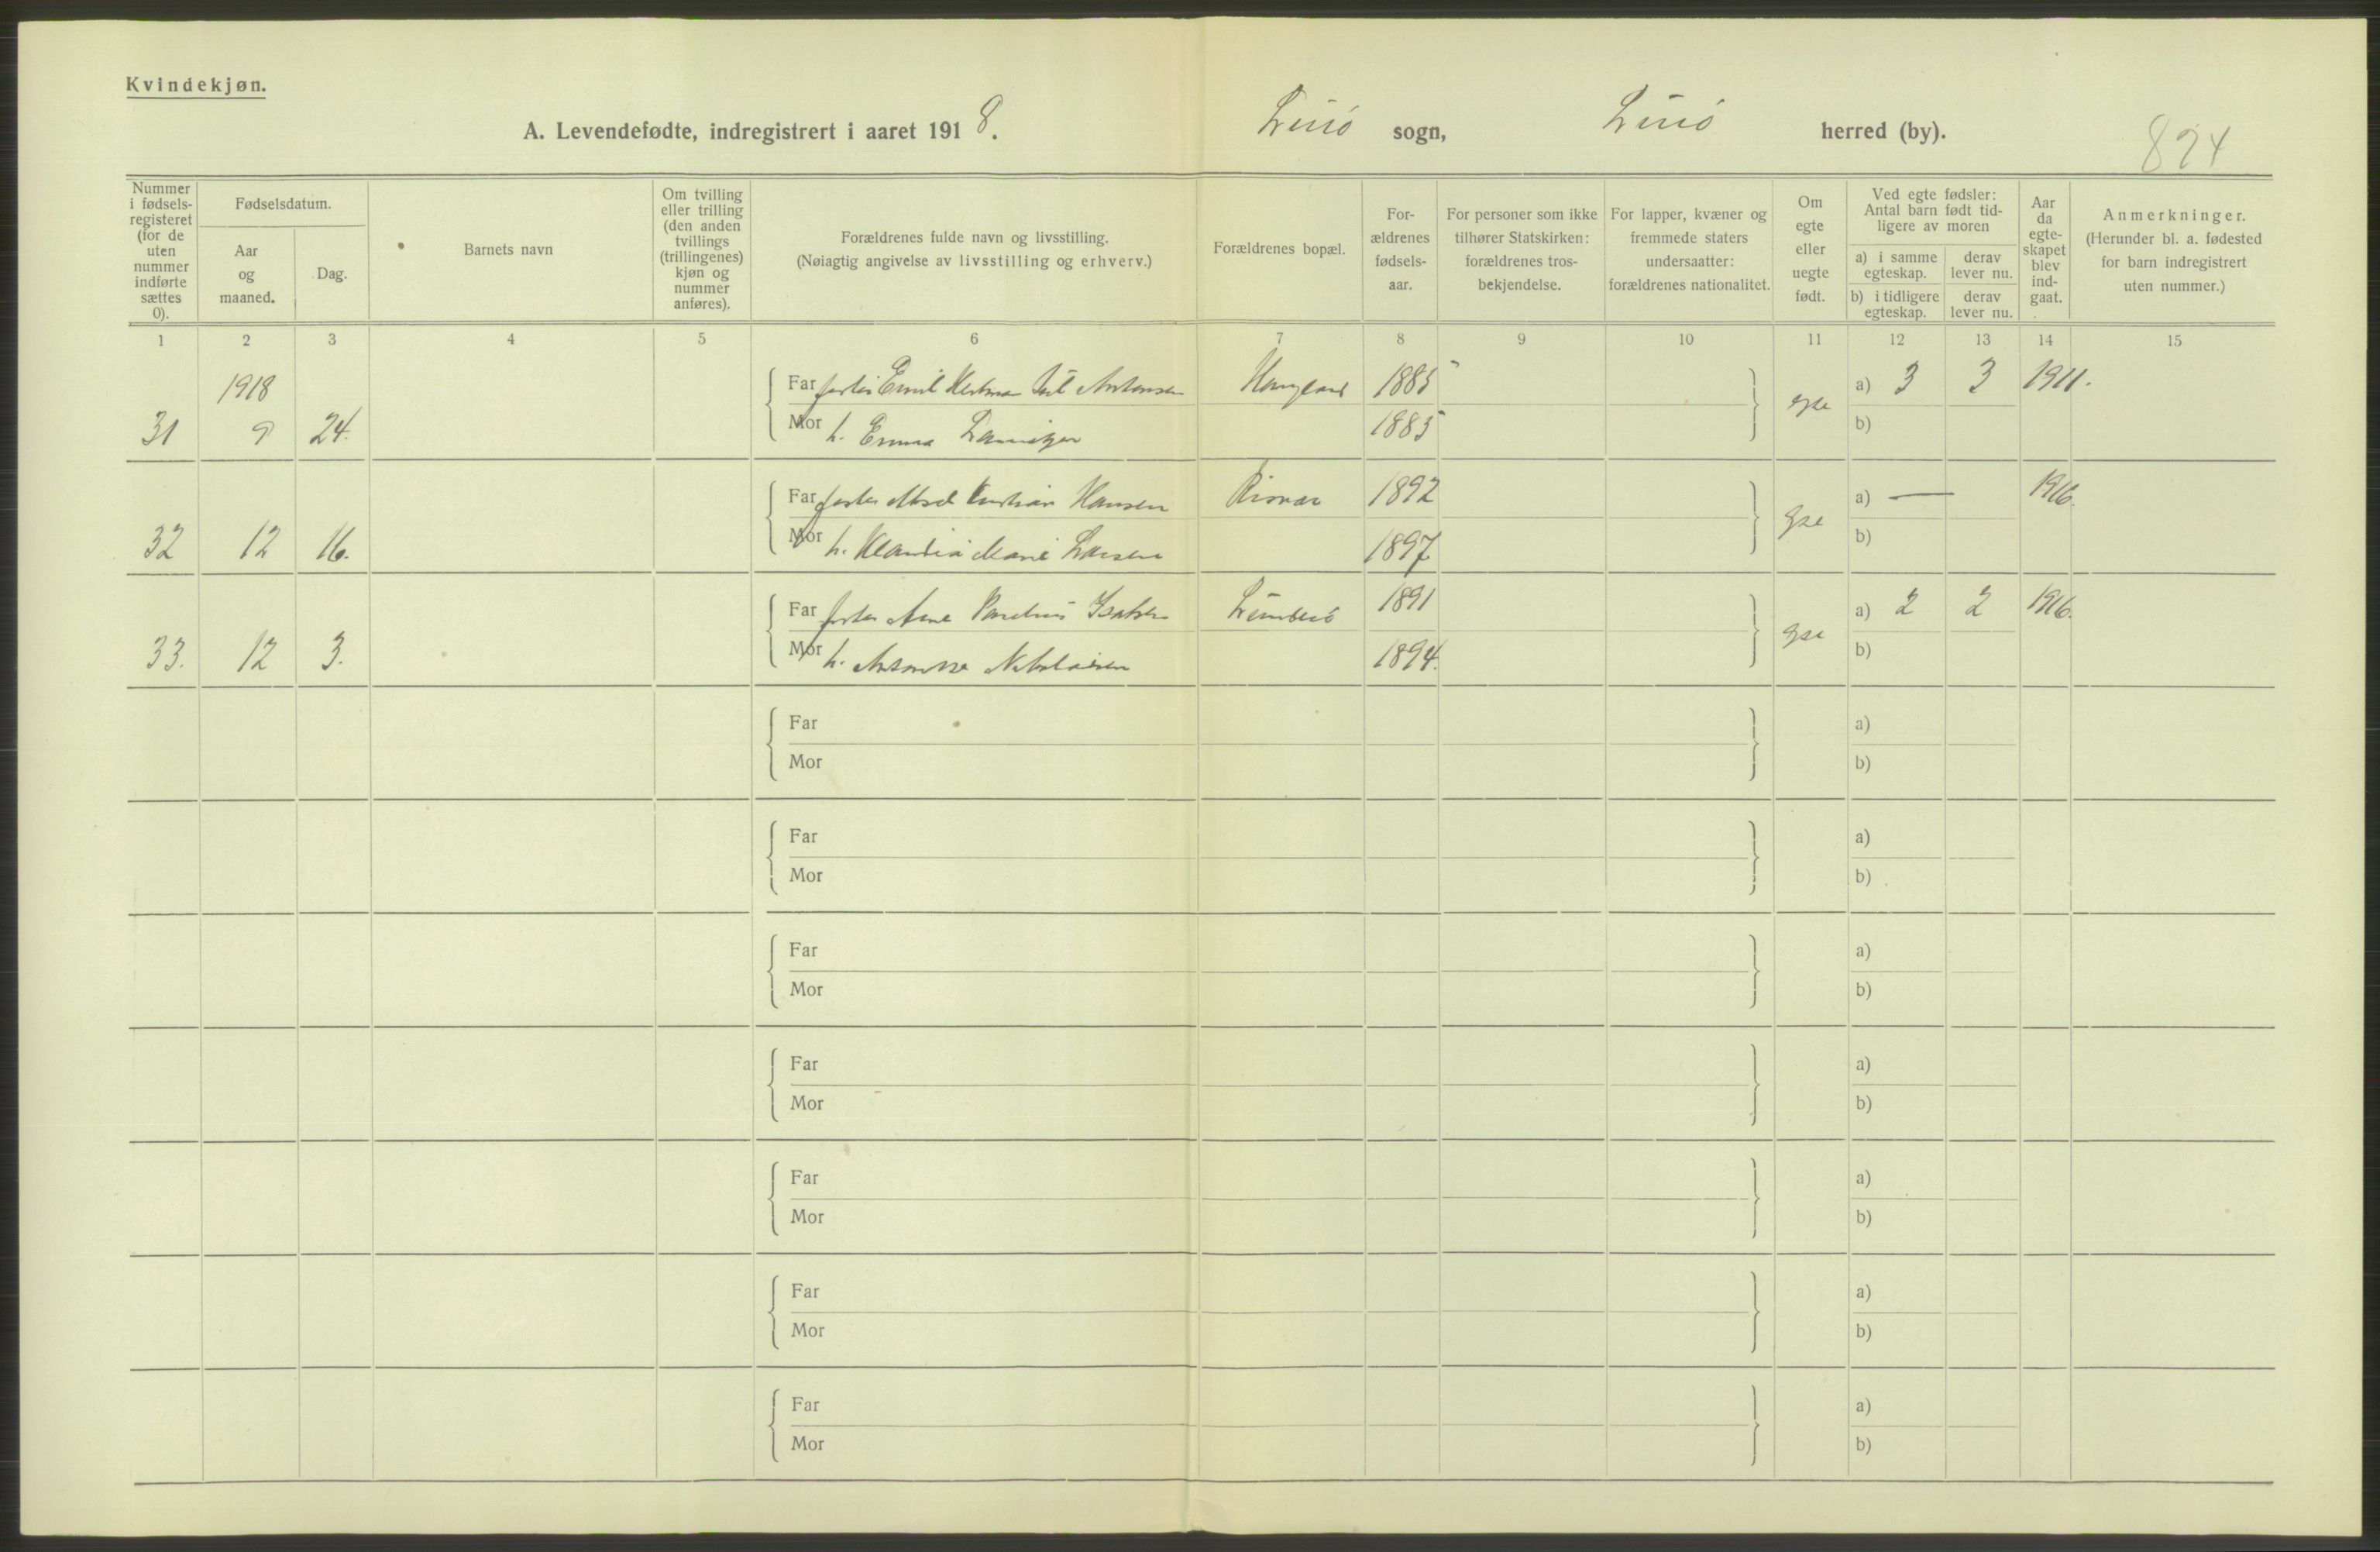 Kvindekjøn.
A. Levendefødte, indregistrert i aaret 1918. Lurö sogn, Lurö herred (by).
894
Nummer i fødsels-registeret (for de uten nummer indførte sættes 0).
Fødselsdatum.
Aar og maaned.
Dag.
Barnets navn
Om tvilling eller trilling (den anden tvillings (trillingenes) kjøn og nummer anføres).
Forældrenes fulde navn og livsstilling.
(Nøiagtig angivelse av livsstilling og erhverv.)
Forældrenes bopæl.
For-ældrenes fødsels-aar.
For personer som ikke tilhører Statskirken: forældrenes tros-bekjendelse.
For lapper, kvæner og fremmede staters undersaatter: forældrenes nationalitet.
Om egte eller uegte født.
Ved egte fødsler: Antal barn født tid-ligere av moren
a) i samme egteskap.
derav lever nu.
b) i tidligere egteskap.
derav lever nu.
Aar da egte-skapet blev ind-gaat.
Anmerkninger.
(Herunder bl. a. fødested for barn indregistrert uten nummer.)
1 2 3 4 5 6 7 8 9 10 11 12 13 14 15
1918
Far Emil Antonsen 1885 a) 3 3 1911.
31 9 24. Mor h. Emma 1885 egte b)
Far Kristian Hansen Risvær 1892 a) — 1916.
32 12 16. Mor h. Klaudia Marie Larsen 1897 egte b)
Far Arne Isaksen 1891 a) 2 2 1916.
33. 12 3. Mor h. Nikolaisen 1894. egte b)
Far a)
Mor b)
Far a)
Mor b)
Far a)
Mor b)
Far a)
Mor b)
Far a)
Mor b)
Far a)
Mor b)
Far a)
Mor b)